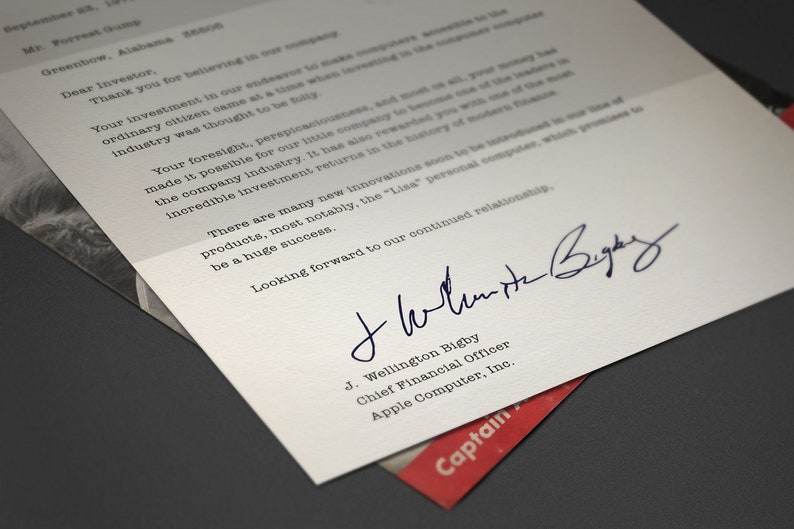 September 23, 197
Mr. Forrest Gump
Greenbow, Alabama 36505
Dear Investor,
Thank you for believing in our company.
Your investment in our endeavor to make computers accesible to the
ordinary citizen came at a time when investing in the consumer computer
industry was thought to be folly.
Your foresight, perspicaciousness, and most os all, your money has
made it possible for our little company to become one of the leaders in
the company industry. It has also rewarded you with one of the most
incredible investment returns in the history of modern finance.
There are many new innovations soon to be introduced in our line of
products, most notably, the "Lisa" personal computer, which promises to
be a huge success.
Looking forward to our continued relationship,
J Wellington Bigby
J. Wellington Bigby
Chief Financial Officer
Apple Computer, Inc.
Captain